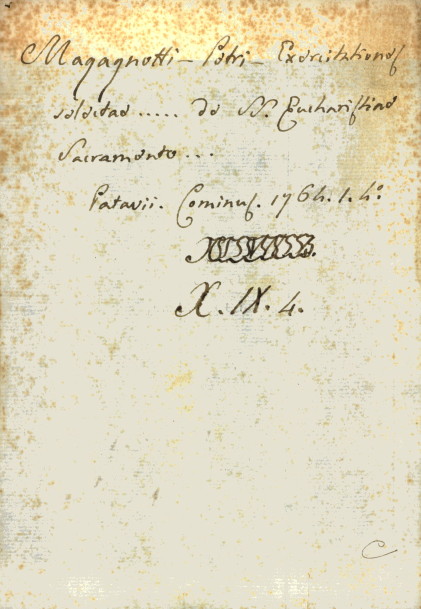 Magagnotti – Petri – Exercitationes
selectae ..... de SS. Eucharistiae
Sacramento ...
Patavii. Cominus. 1764. 1. 4º
X. IX. 4.
C